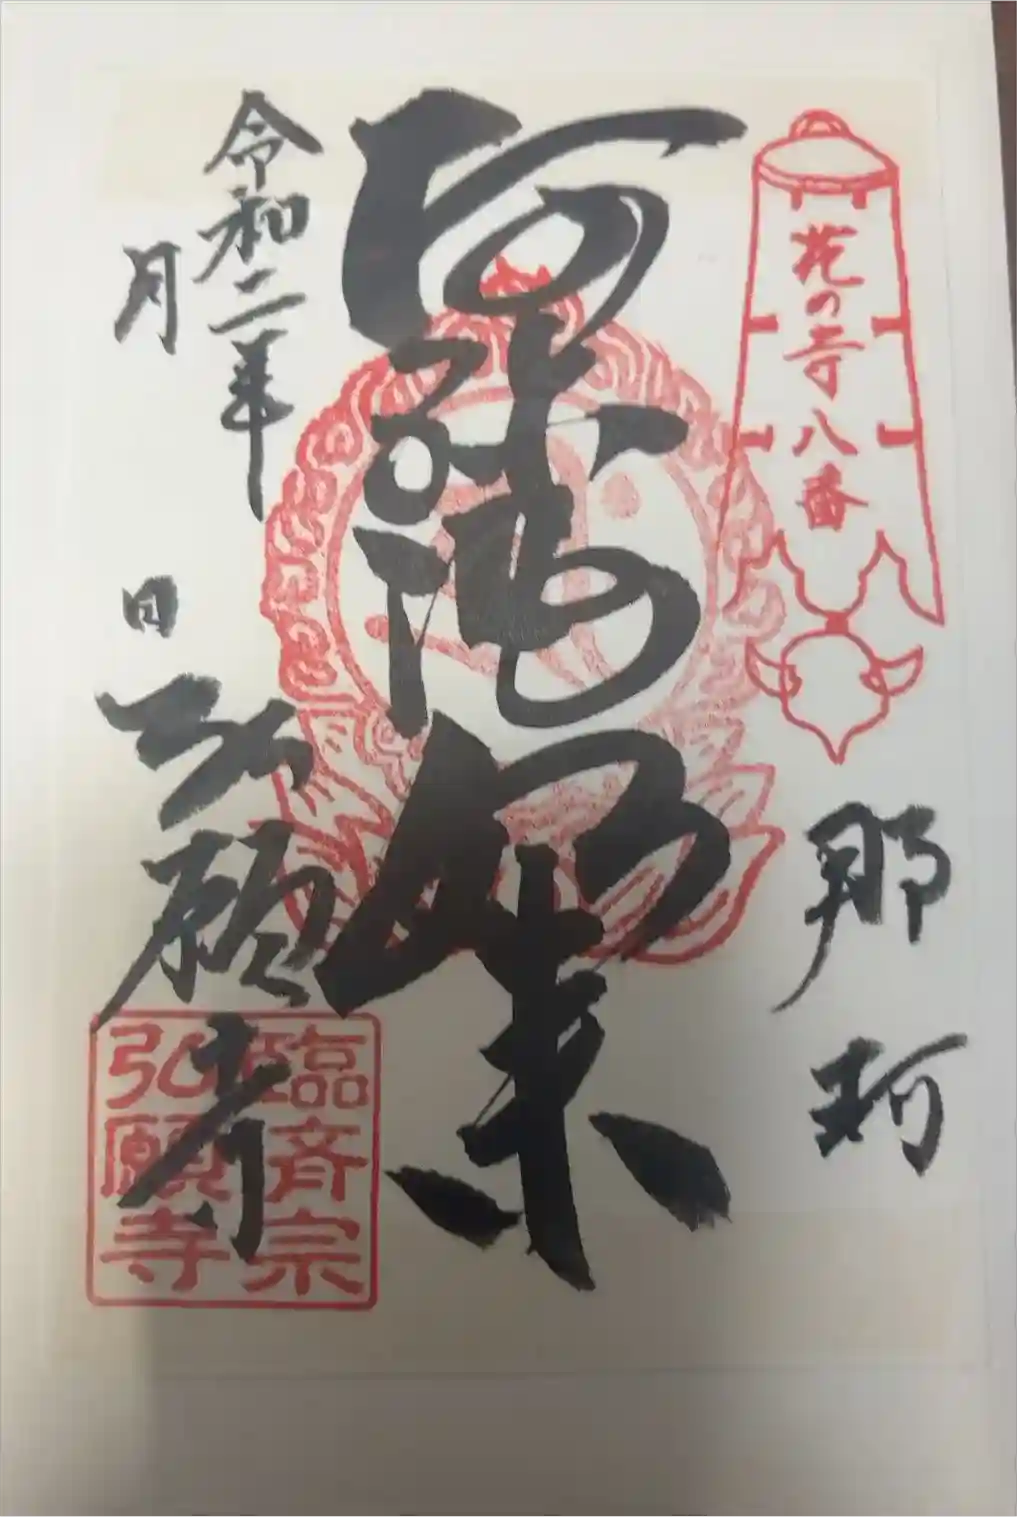 花の寺八番
那珂
阿弥陀如来
令和二年
月　日
弘願寺
臨斉宗
弘願寺